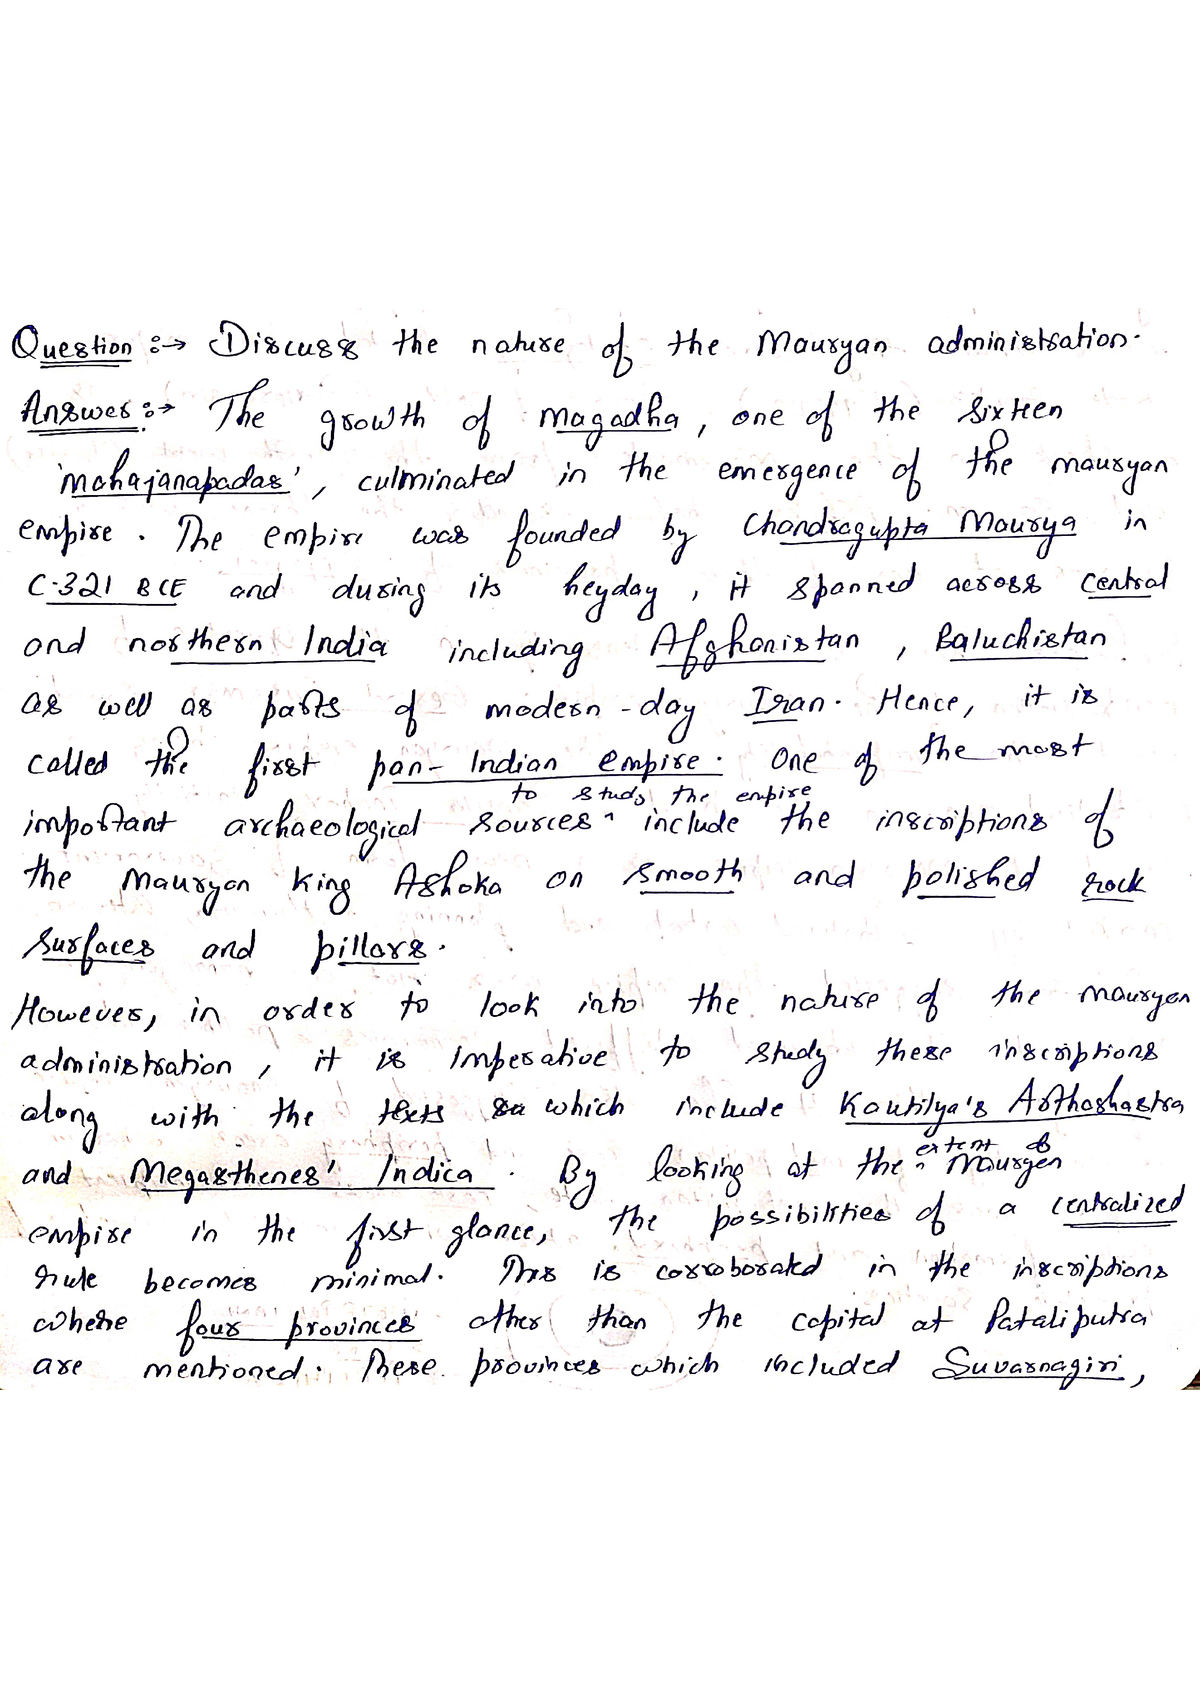 Question :→ Discuss the nature of the Mauryan administration.
Answer :→ The growth of Magadha, one of the sixteen
'mahajanapadas', culminated in the emergence of the mauryan
empire. The empire was founded by Chandragupta Maurya in
C.321 BCE and during its heyday, it spanned across central
and northern India including Afghanistan, Baluchistan
as well as parts of modern-day Iran. Hence, it is
called the first pan-Indian empire. One of the most
to study the empire
important archaeological sources ^ include the inscriptions of
the Mauryan King Ashoka on smooth and polished rock
surfaces and pillars.
However, in order to look into the nature of the mauryan
administration, it is imperative to study these inscriptions
along with the texts which include Kautilya's Arthashastra
extent of
and Megasthenes' Indica. By looking at the ^ Mauryan
empire in the first glance, the possibilities of a centralized
rule becomes minimal. This is corroborated in the inscriptions
where four provinces other than the capital at Pataliputra
are mentioned. These provinces which included Suvarnagiri,